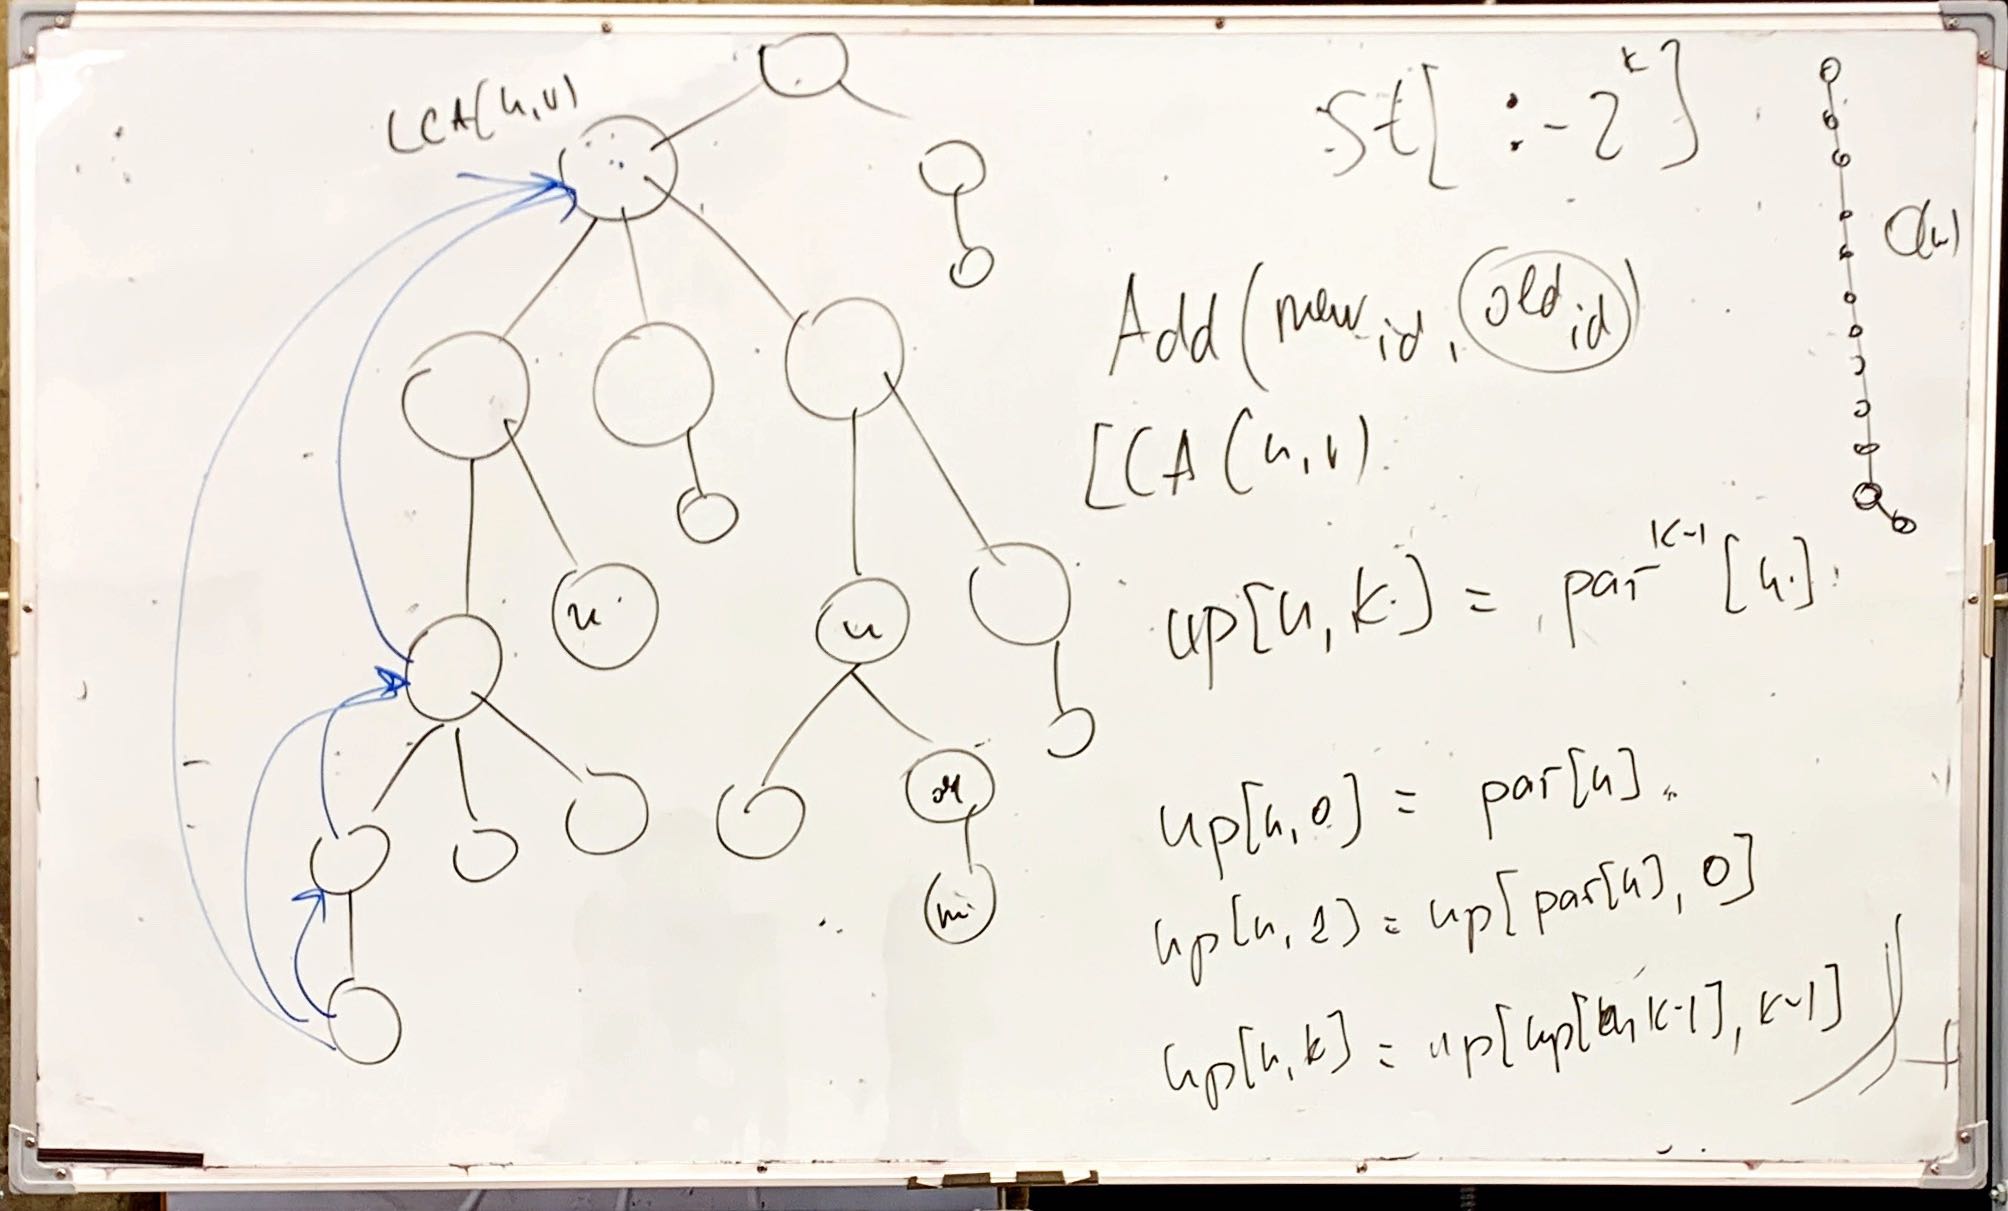 LCA(u,v)
st[ :-2^k]
O(n)
Add(new_id, old_id)
LCA(u,v)
up[u,k] = par^k-1[u]
u
u
up[u,0] = par[u]
up[u,1] = up[par[u],0]
up[u,k] = up[up[u,k-1],k-1]